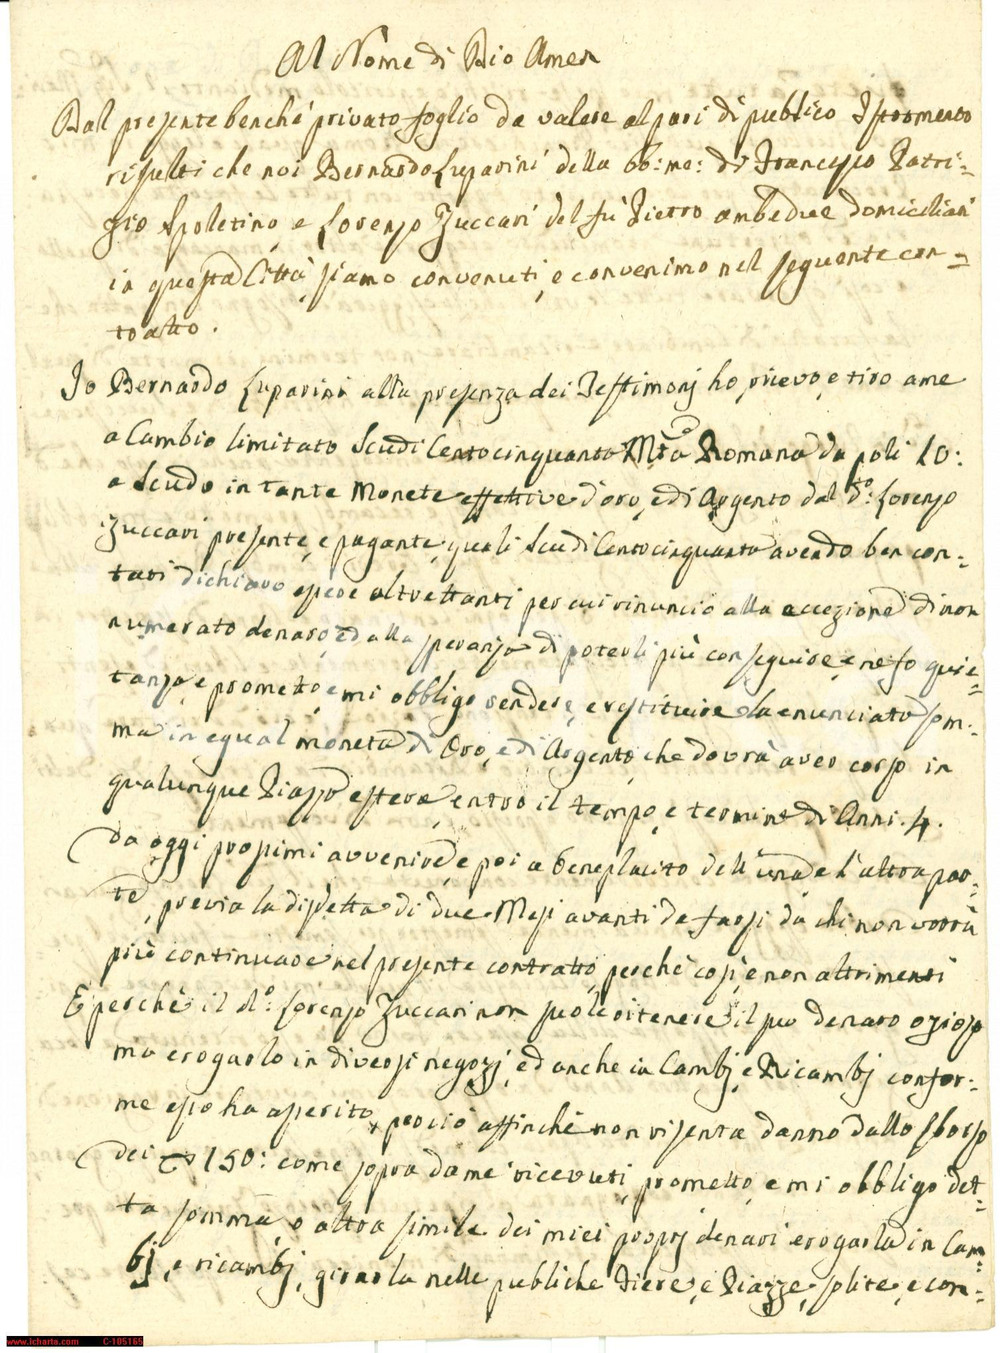 Al Nome di Dio Amen
Dal presente benchè privato foglio da valere al pari di publico Istromento
risulti che noi Bernardo Luparini della bo: me: di Francesco Patri-
zio Spoletino, e Lorenzo Zuccari del fù Pietro ambedue domiciliari
in questa Città, siamo convenuti, e convenimo nel seguente con-
tratto.
Io Bernardo Luparini alla presenza dei Testimonj ho, ricevo, e tiro a me
a Cambio limitato Scudi Centocinquanta Mta Romana da paoli 10:
a Scudo in tante Monete effettive d'oro, e di Argento dal do: Lorenzo
Zuccari presente, e pagante, quali Scudi Centocinquanta avendo ben con-
tati dichiaro essere altrettanti per cui rinuncio alla eccezione di non
numerato denaro, ed alla speranza di poterli più conseguire, e ne fo quie-
tanza, e prometto, e mi obbligo rendere, e restituire la enunciata som-
ma in egual moneta di Oro, e di Argento, che dovrà aver corso in
qualunque Piazza estera, entro il tempo, e termine di Anni. 4.
da oggi prossimi avvenire, e poi a beneplacito dell'una, e l'altra par-
te, previa la disdetta di due Mesi avanti da farsi da chi non vorrà
più continuare nel presente contratto, perchè così, e non altrimenti
E perchè il do: Lorenzo Zuccari non suole ritenere il suo denaro ozioso
ma erogarlo in diversi negozj, ed anche in Cambj, e Ricambj confor-
me esso ha asserito, perciò affinchè non risenta danno dallo sborso
dei 150: come sopra da me ricevuti, prometto, e mi obbligo det-
ta somma, o altra simile dei miei proprj denari erogarla in Cam-
bj, e ricambj, girarla nelle pubbliche Fiere, e Piazze, solite, e con-
www.icharta.com C-105165